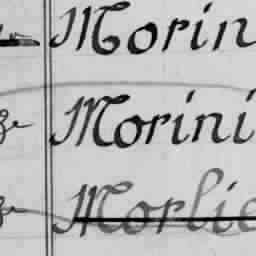 Morin
Morini
Morlie